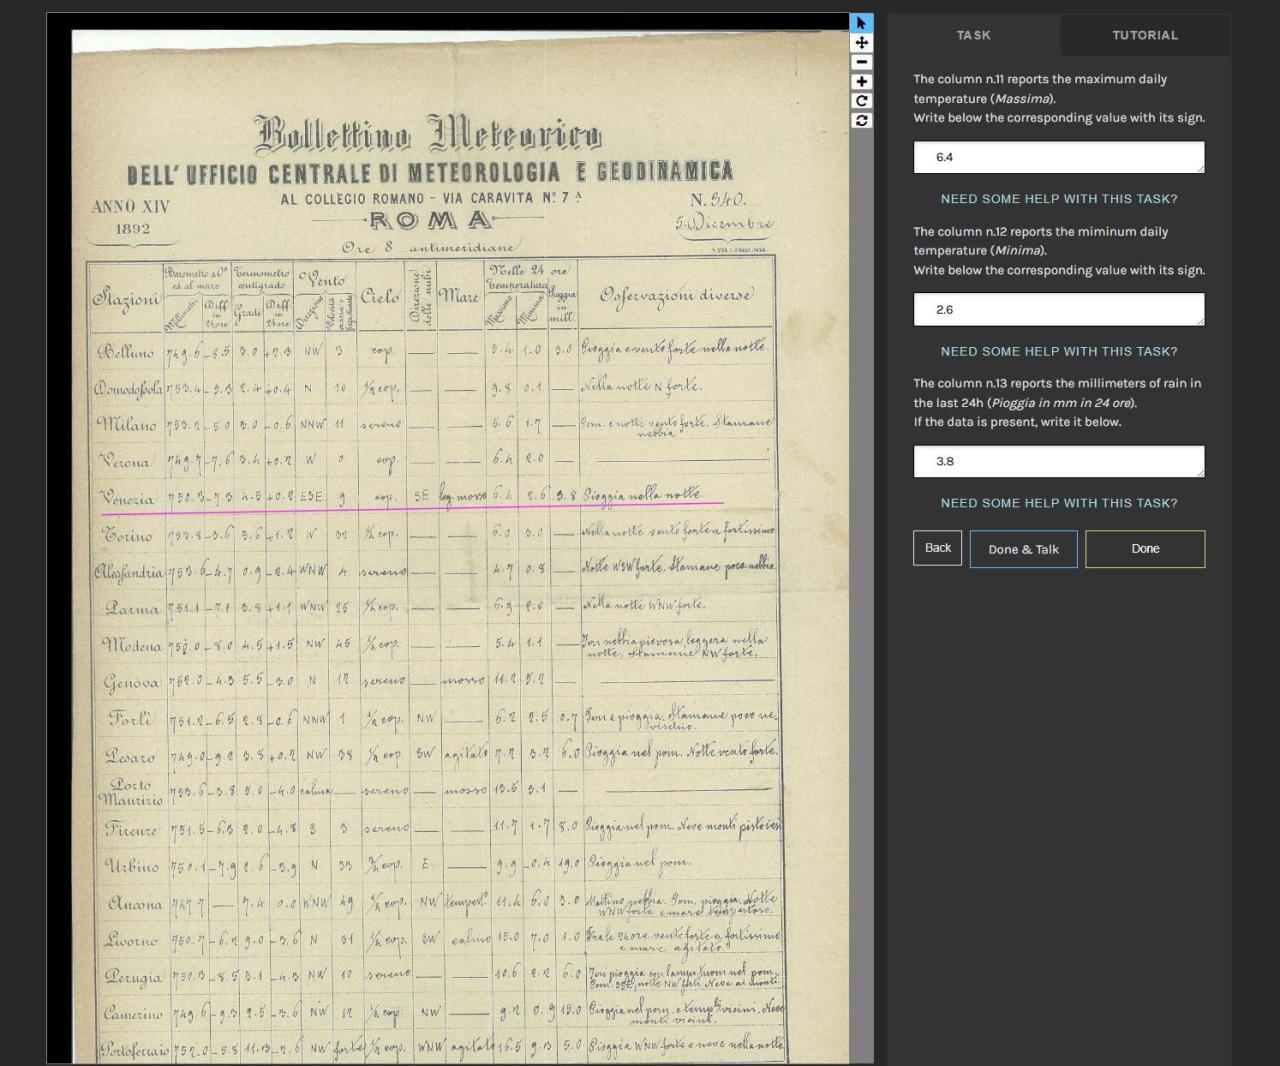 TASK
TUTORIAL
The column n.11 reports the maximum daily
temperature (Massima).
Write below the corresponding value with its sign.
6.4
NEED SOME HELP WITH THIS TASK?
The column n.12 reports the miminum daily
temperature (Minima).
Write below the corresponding value with its sign.
2.6
NEED SOME HELP WITH THIS TASK?
The column n.13 reports the millimeters of rain in
the last 24h (Pioggia in mm in 24 ore).
If the data is present, write it below.
3.8
NEED SOME HELP WITH THIS TASK?
Back
Done & Talk
Done
Bollettino Meteorico
DELL' UFFICIO CENTRALE DI METEOROLOGIA E GEODINAMICA
AL COLLEGIO ROMANO - VIA CARAVITA Nº 7 A
ROMA
ANNO XIV
1892
N. 340.
5 Dicembre
Ore 8 antimeridiane
Stazioni
Barometro a 0°
ed al mare
Millimetri
Diff. in 24 ore
Termometro
centigrado
Gradi
Diff. in 24 ore
Vento
Direzione
Cielo
Direzione delle nubi
Mare
Nelle 24 ore
Temperatura
Massima
Minima
Pioggia in mill.
Osservazioni diverse
Belluno 749.6 -8.5 3.0 +2.3 NW 3 cop. — — 5.4 1.0 3.0 Pioggia e vento forte nella notte.
Domodossola 753.4 -3.3 2.4 +0.4 N 10 ½ cop. — — 9.8 0.1 — Nella notte N forte.
Milano 753.2 -5.0 3.0 -0.6 NNW 11 sereno — — 5.6 1.7 — Pom. e notte vento forte. Stamane
nebbia
Verona 749.7 -7.6 3.4 +0.2 W 0 cop. — — 6.4 2.0 —
Venezia 750.3 -7.3 4.5 +0.2 ESE 9 cop. SE leg. mosso 6.4 2.6 3.8 Pioggia nella notte
Torino 753.8 -3.6 3.6 +1.2 W 32 ½ cop. — — 6.0 3.0 — Nella notte vento forte a fortissimo
Alessandria 753.6 -4.7 0.9 -2.4 WNW 4 sereno — — 4.7 0.8 — Notte WSW forte. Stamane poca nebbia
Parma 751.1 -7.1 3.8 +1.1 WNW 25 ½ cop. — — 6.9 2.0 — Nella notte WNW forte.
Modena -8.0 4.5 +1.5 NW 45 ½ cop. — — 5.4 1.1 — Ieri nebbia piovosa leggera nella
notte. Stamane NW forte.
Genova 752.0 -4.3 5.5 -3.0 N 12 sereno — mosso 11.2 5.2 —
Forlì 751.2 -6.5 2.8 -0.6 NNW 1 ½ cop. NW — 6.2 2.5 0.7 Ieri e pioggia. Stamane poco ne-
vischio.
Pesaro 749.0 -9.2 3.8 +0.2 NW 38 ½ cop. SW agitato 7.2 3.2 6.0 Pioggia nel pom. Notte vento forte.
Porto
Maurizio 753.6 -3.8 5.0 -4.0 calma — sereno — mosso 13.5 3.1 —
Firenze 751.5 -6.3 2.0 -4.8 S 3 sereno — — 11.7 1.7 8.0 Pioggia nel pom. Neve monti pistoiesi
Urbino 750.1 -7.9 2.6 -3.9 N 33 ¾ cop. E — 9.9 -0.4 19.0 Pioggia nel pom.
Ancona 747.7 — 7.4 0.0 WNW 49 ½ cop. NW tempest.º 11.4 6.0 3.0 Mattino nebbia. Pom. pioggia. Notte
WNW forte e mare tempestoso.
Livorno 750.7 -6.2 9.0 -3.6 N 31 ½ cop. SW calmo 15.0 7.0 1.0 Fra le 24 ore vento forte a fortissimo
e mare agitato.
Perugia 750.3 -8.5 3.1 -4.3 NW 10 sereno — — 10.6 2.2 6.0 Ieri pioggia con lampi tuoni nel pom.
Camerino 749.6 -9.3 2.5 -3.6 NW 12 ½ cop. NW — 9.2 0.9 15.0 Pioggia nel pom. e vicini. Neve
monti vicini.
Portoferraio 752.0 -5.8 -2.6 NW forte ½ cop. WNW agitato 16.5 5.0 Pioggia WNW forte e neve nella notte